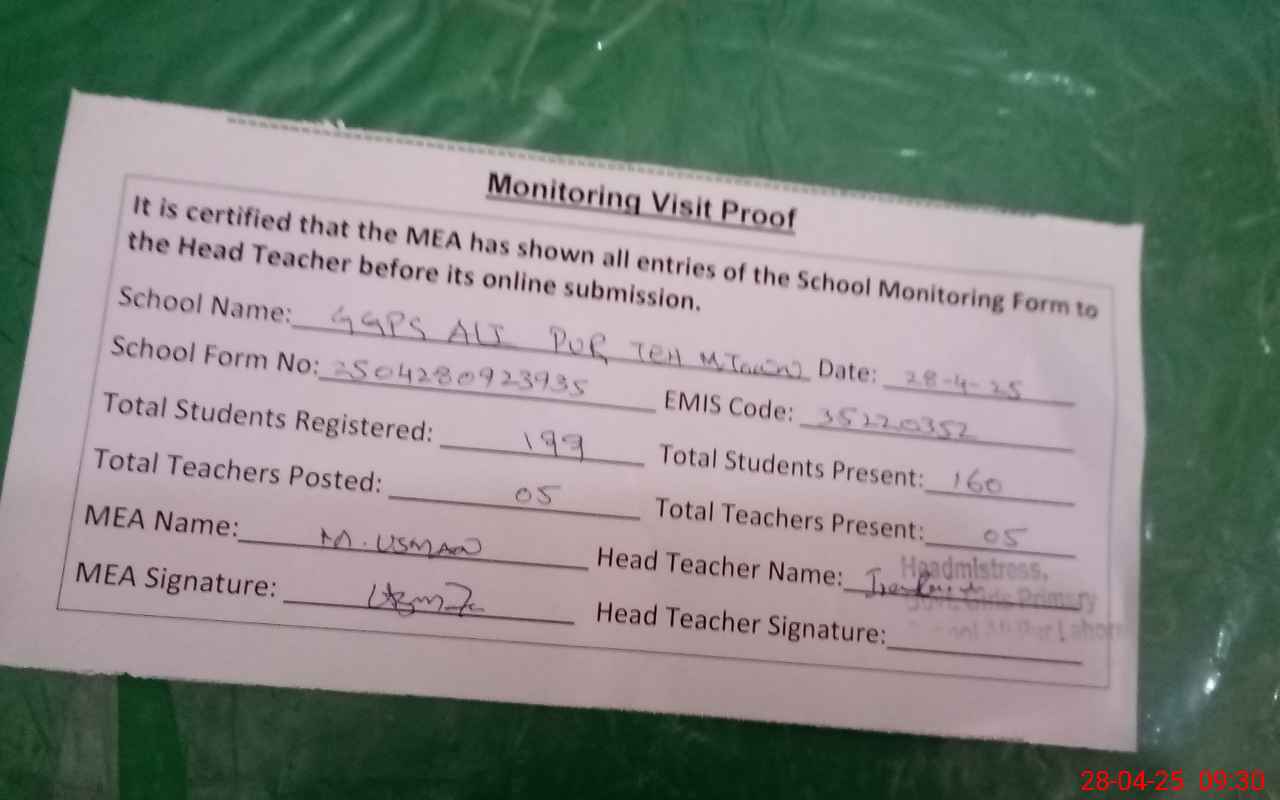 Monitoring Visit Proof
It is certified that the MEA has shown all entries of the School Monitoring Form to
the Head Teacher before its online submission.
School Name: GGPS ALI PUR TEH M.Town Date: 28-4-25
School Form No: 2504280923935 EMIS Code: 35220352
Total Students Registered: 199 Total Students Present: 160
Total Teachers Posted: 05 Total Teachers Present: 05
MEA Name: M. USMAN Head Teacher Name:
MEA Signature: Head Teacher Signature:
Headmistress,
Govt. Girls Primary
School Ali Pur Lahore
28-04-25 09:30